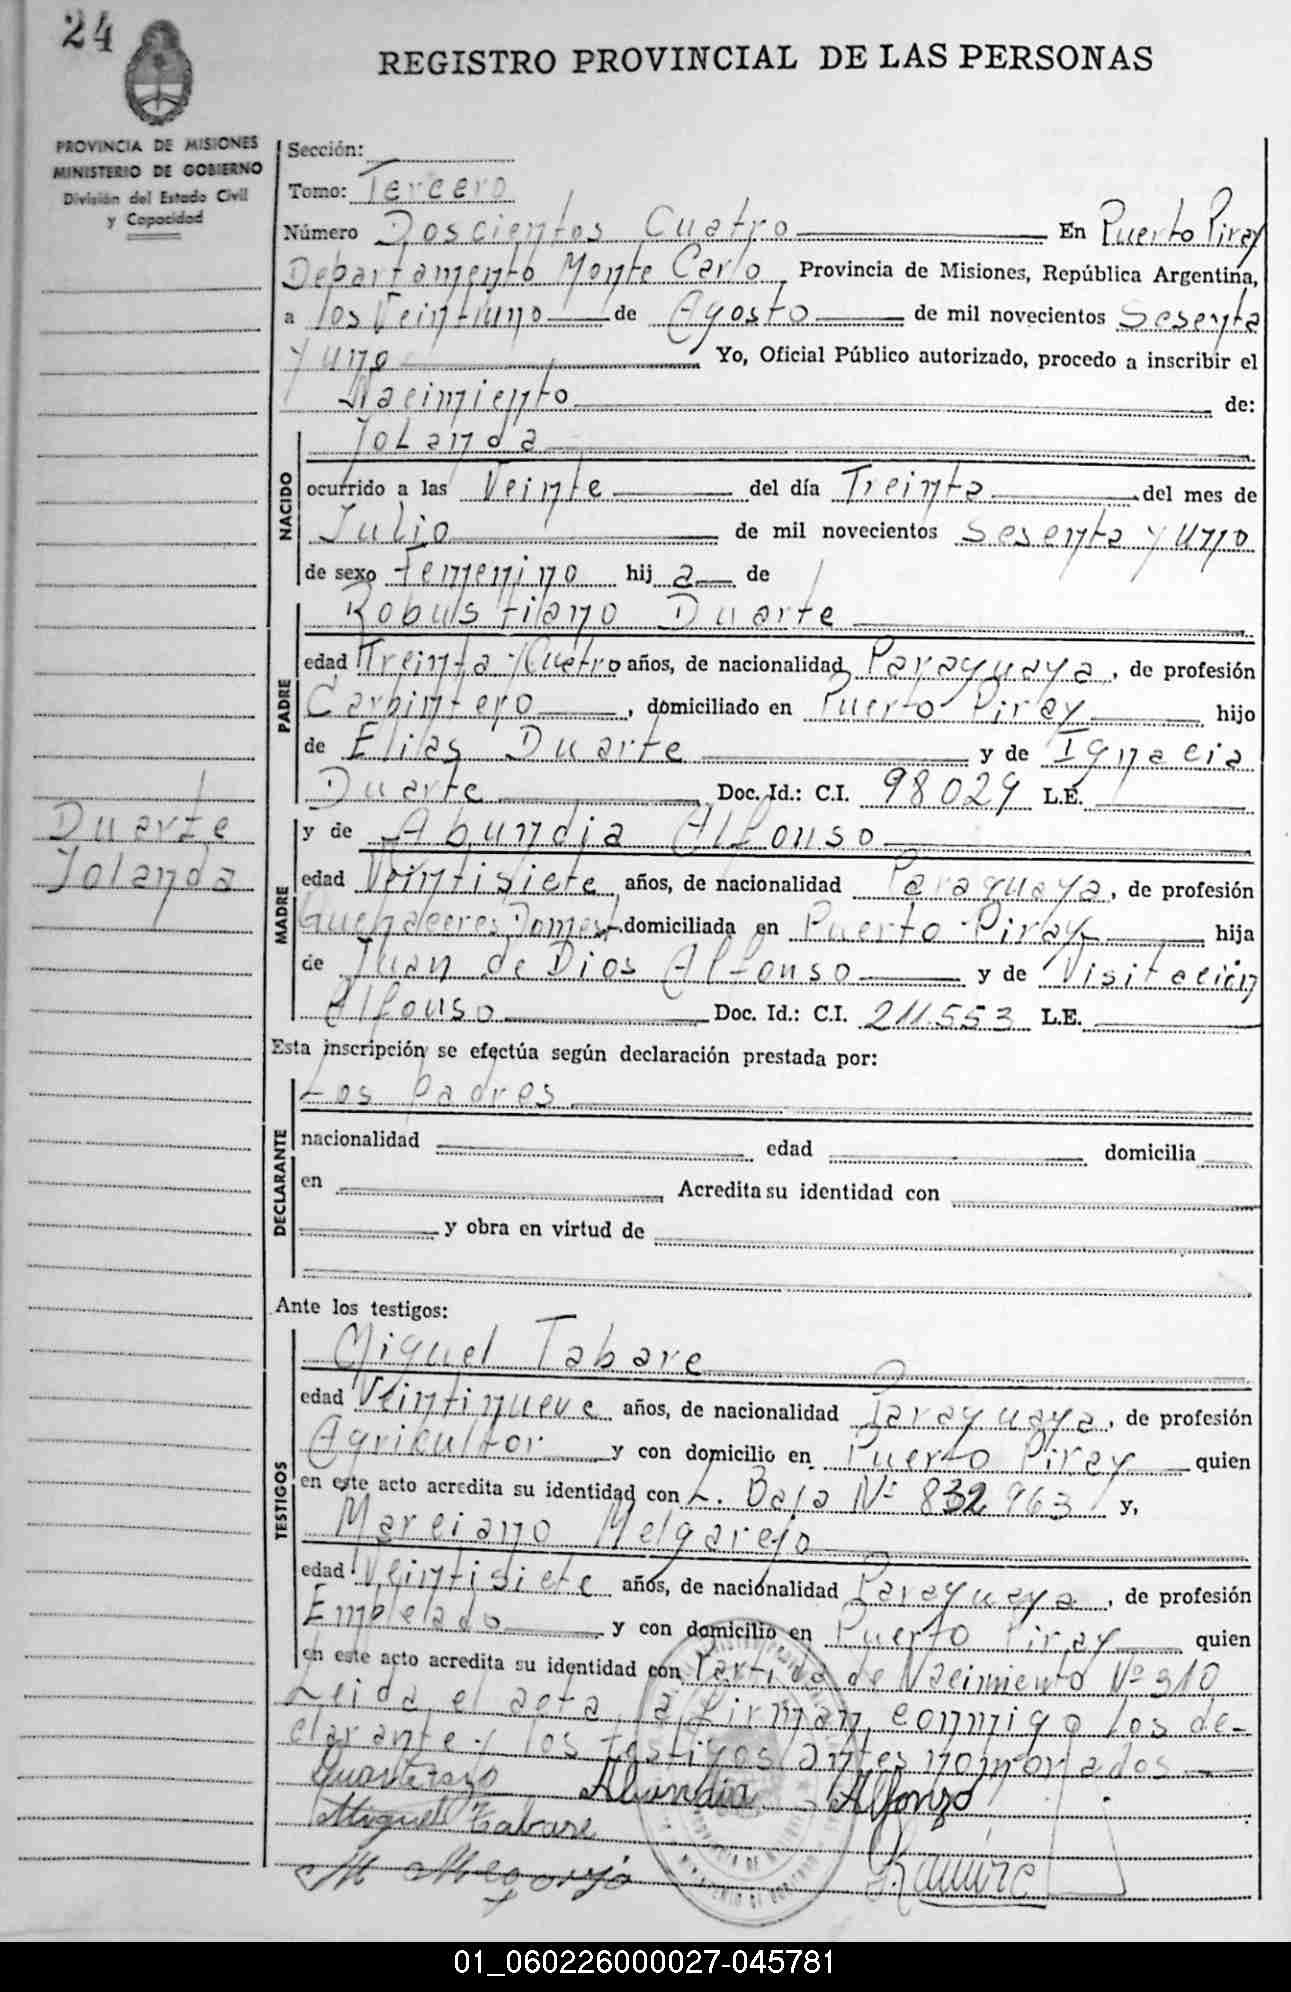 24
REGISTRO PROVINCIAL DE LAS PERSONAS
PROVINCIA DE MISIONES
MINISTERIO DE GOBIERNO
División del Estado Civil
y Capacidad
Sección:
Tomo: Tercero
Número Doscientos Cuatro En Puerto Piray
Departamento Monte Carlo, Provincia de Misiones, República Argentina,
a los Veintiuno de Agosto de mil novecientos Sesenta
y uno Yo, Oficial Público autorizado, procedo a inscribir el
Nacimiento de:
NACIDO
Jolanda
ocurrido a las Veinte del día Treinta del mes de
Julio de mil novecientos Sesenta y uno
de sexo Femenino hij a de
PADRE
Robustiano Duarte
edad Treinta y Cuatro años, de nacionalidad Paraguaya, de profesión
Carpintero, domiciliado en Puerto Piray hijo
de Elias Duarte y de Ignacia
Duarte Doc. Id.: C.I. 98029 L.E.
Duarte
Jolanda
MADRE
y de Abundia Alfonso
edad Veintisiete años, de nacionalidad Paraguaya, de profesión
Quehaceres Domest. domiciliada en Puerto Piray hija
de Juan de Dios Alfonso y de Visitación
Alfonso Doc. Id.: C.I. 211.553 L.E.
Esta inscripción se efectúa según declaración prestada por:
DECLARANTE
Los padres
nacionalidad edad domicilia
en Acredita su identidad con
y obra en virtud de
Ante los testigos:
TESTIGOS
Miguel Tabare
edad Veintinueve años, de nacionalidad Paraguaya, de profesión
Agricultor y con domicilio en Puerto Piray quien
en este acto acredita su identidad con L. Baja Nº 832963 y,
Marciano Melgarejo
edad Veintisiete años, de nacionalidad Paraguaya, de profesión
Empleado y con domicilio en Puerto Piray quien
en este acto acredita su identidad con Partida de Nacimiento Nº 310
Leida el acta, la firman conmigo los de-
clarante y los testigos antes nombrados
Abundia Alfonzo
Miguel Tabare
01_060226000027-045781